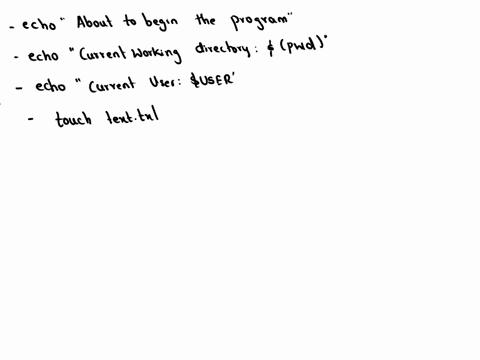 - echo "About to begin the program"
- echo "Current Working directory: $(pwd)"
- echo "Current User: $USER'
- touch text.txt